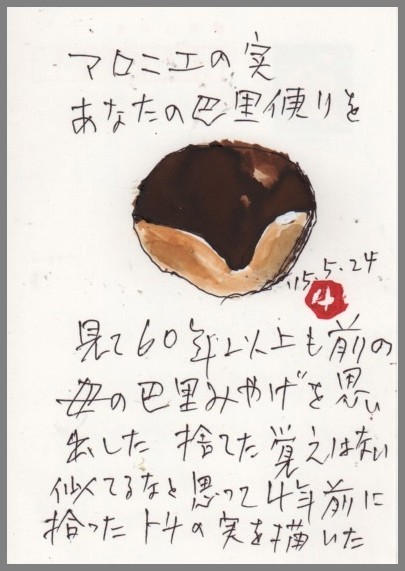 マロニエの実
あなたの巴里便りを
'15.5.24
4
見て60年以上も前の
母の巴里みやげを思い
出した 捨てた覚えはない
似てるなと思って4年前に
拾ったトチの実を描いた